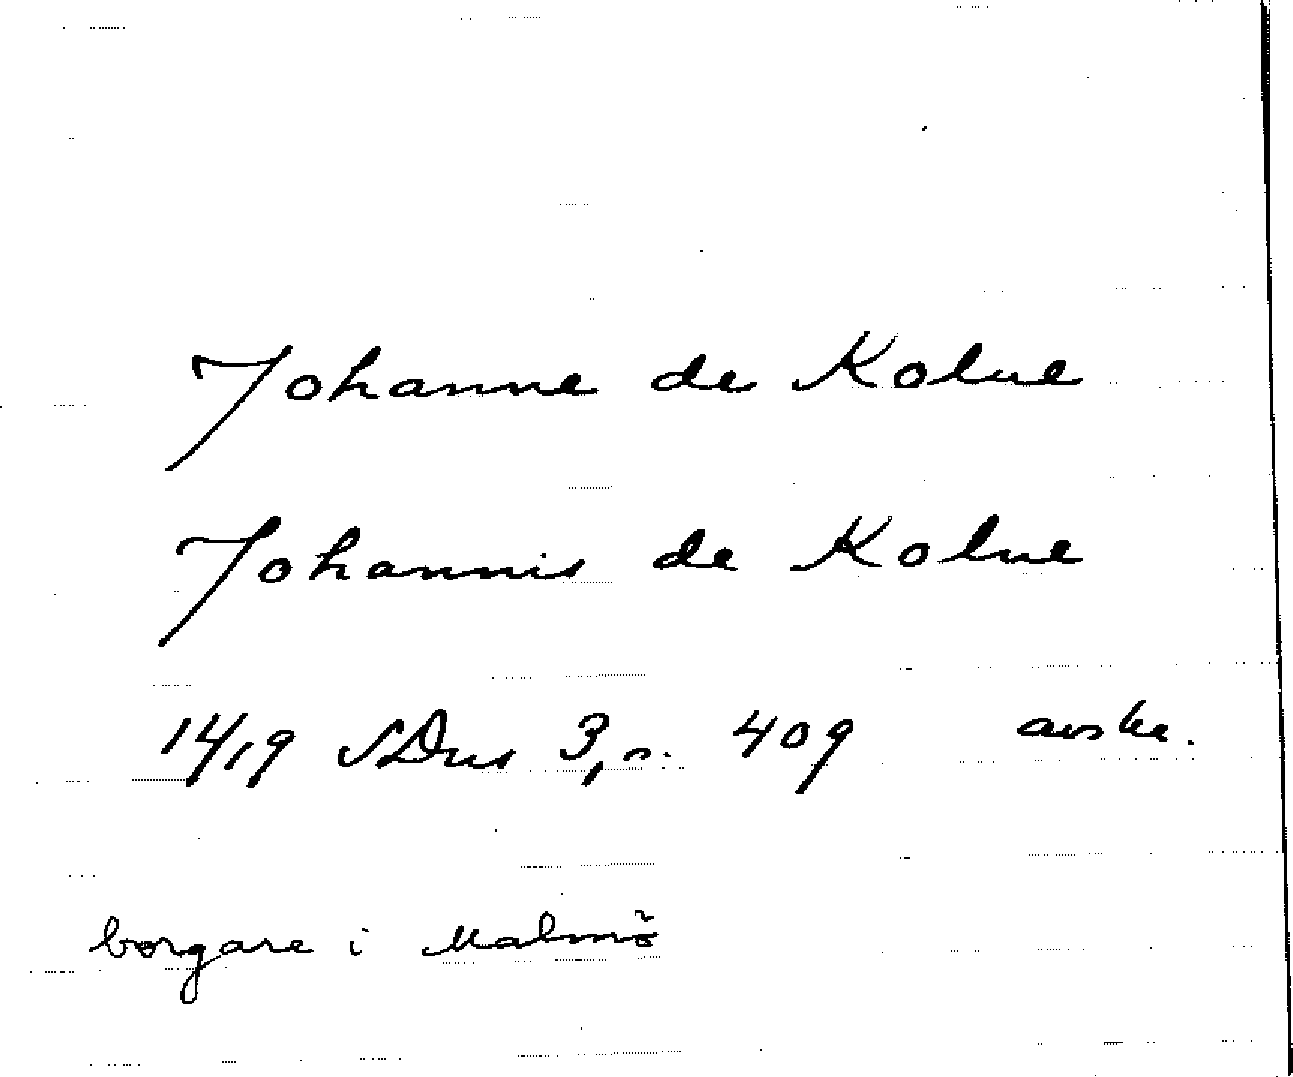 Johanne de Kolue
Johannis de Kolue
1419 SDns 3, s. 409 avskr.
borgare i Malmö